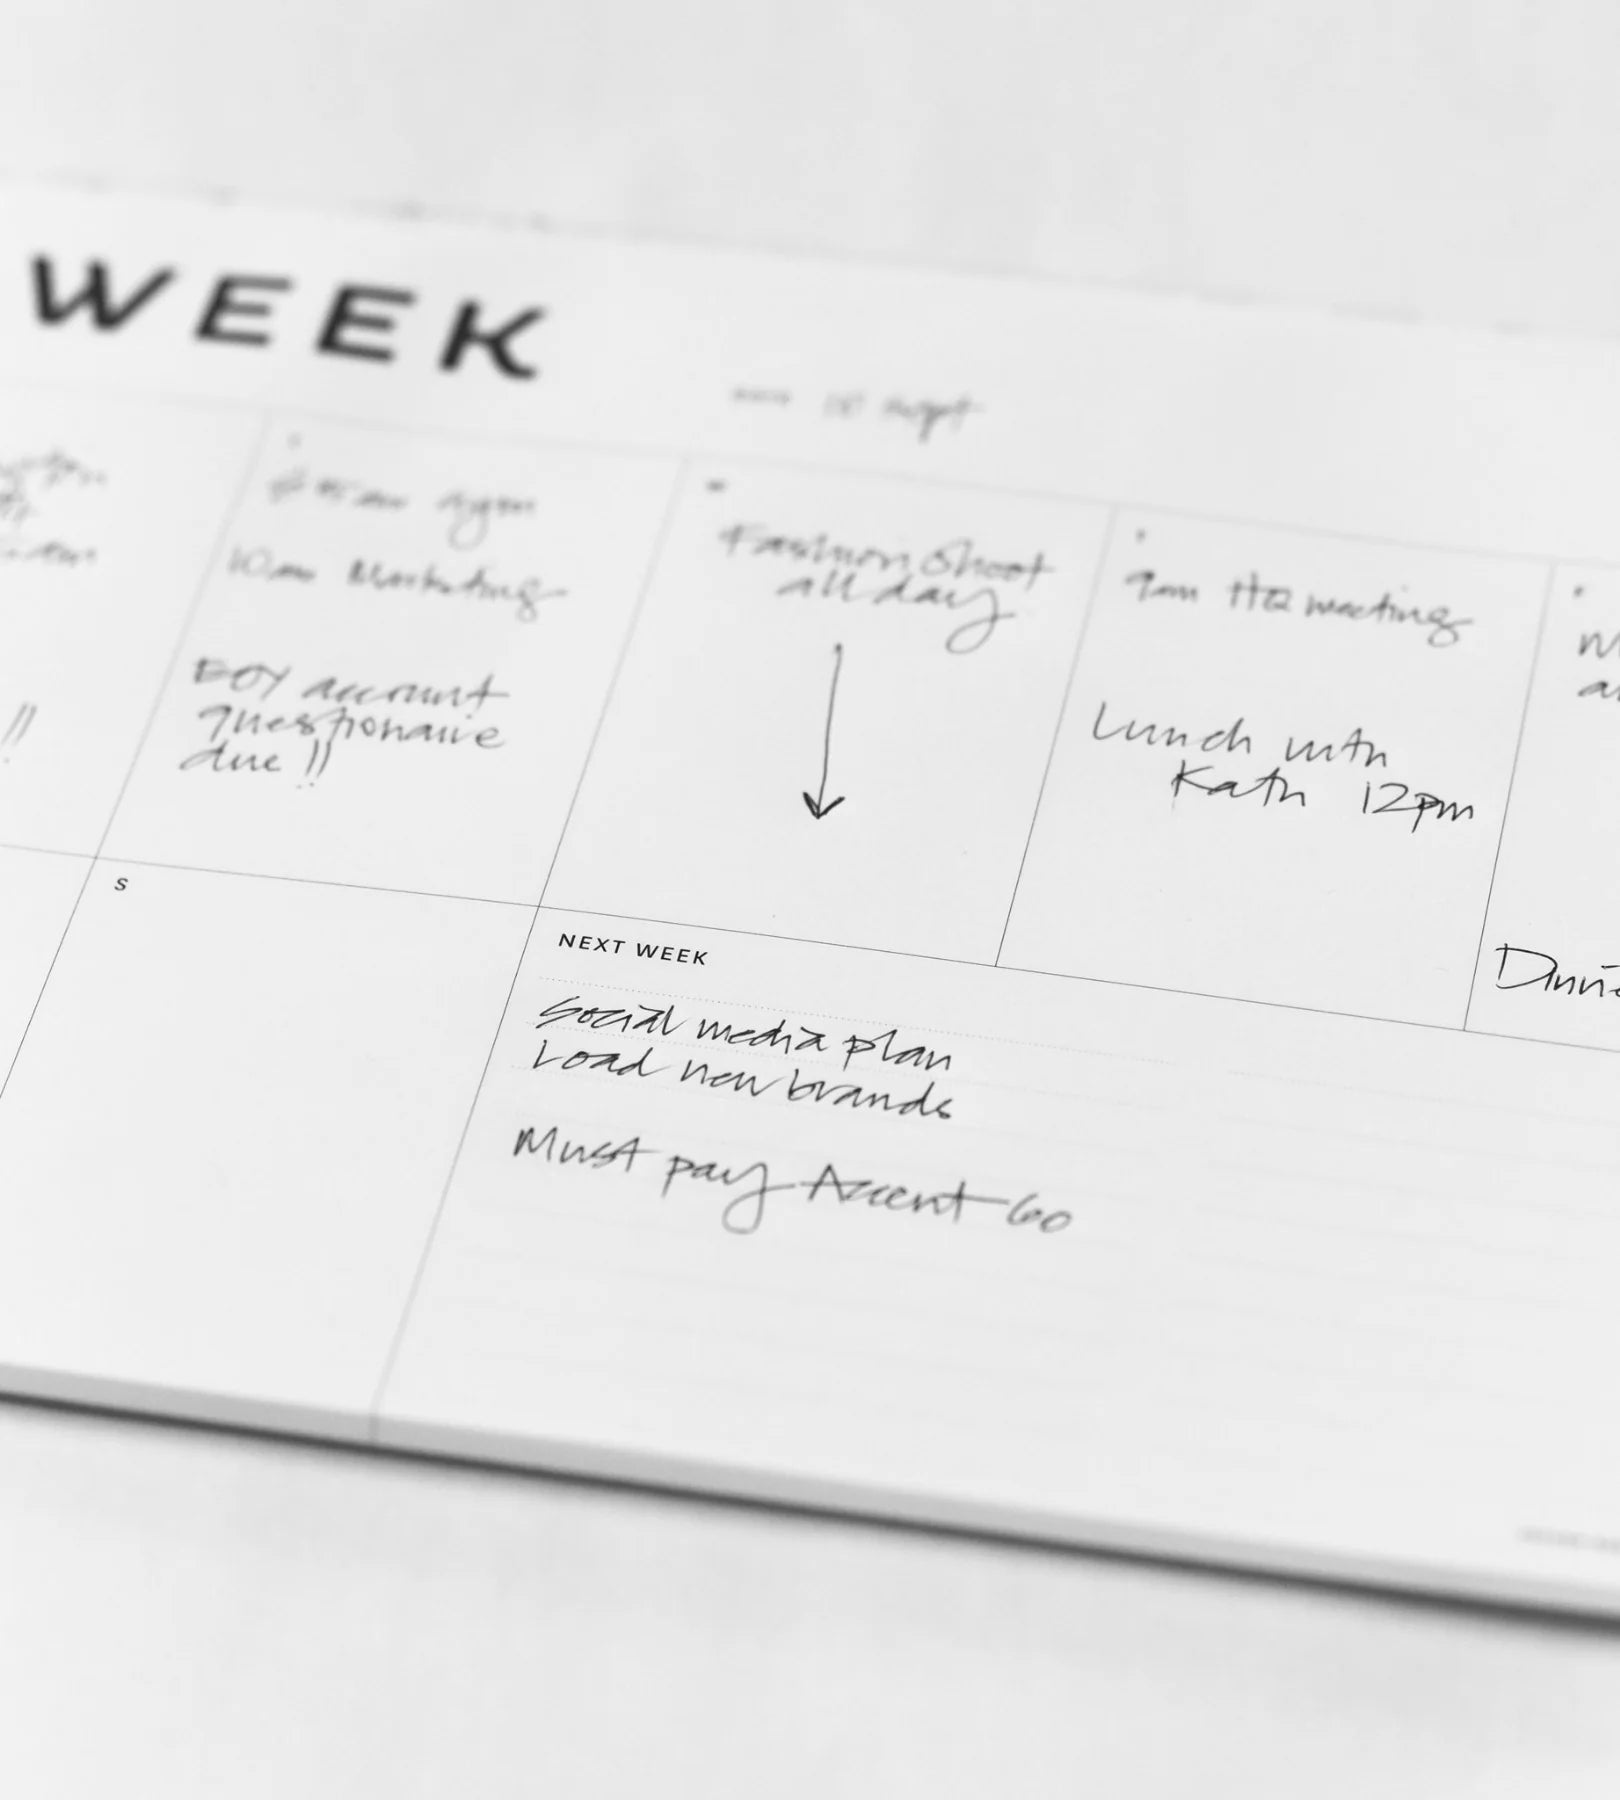 WEEK
Sept
gym
10am Marketing
EOY account
questionaire
due !!
!!
Fashion Shoot
all day
9am HQ meeting
Lunch with
Kath 12pm
S
NEXT WEEK
Social media plan
Load new brands
Must pay Accent Go